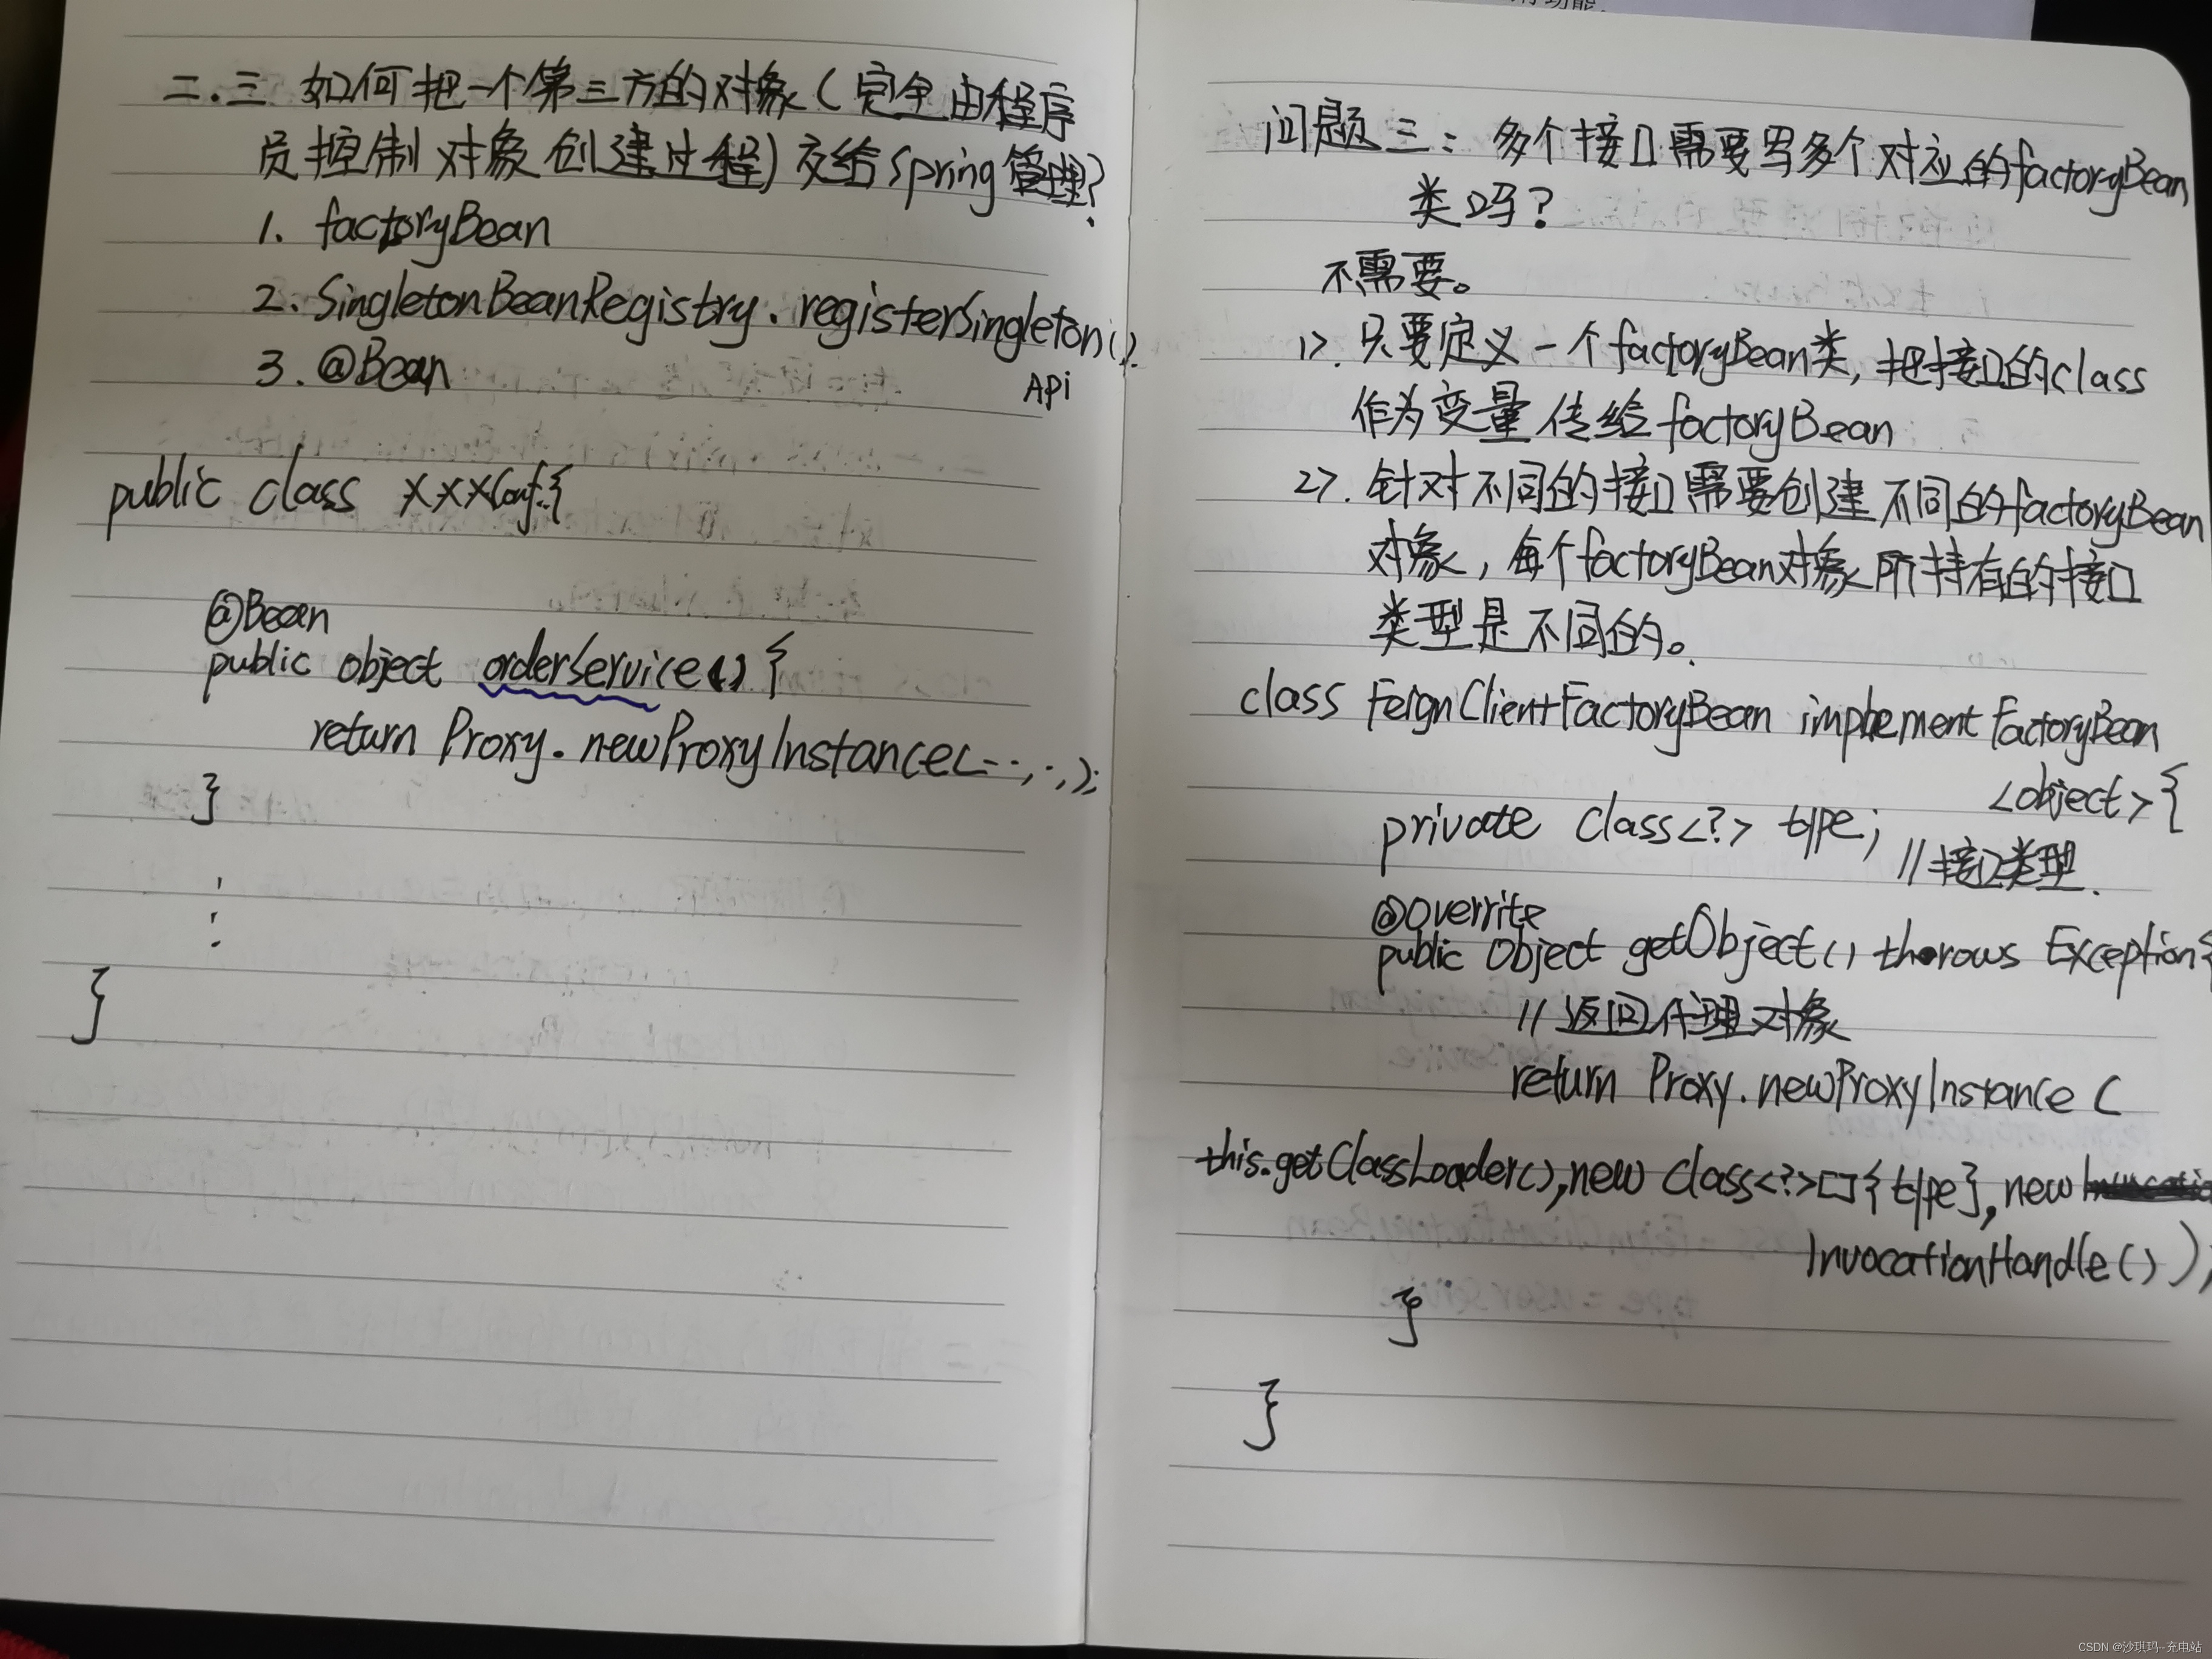 二.三 如何把一个第三方的对象(完全由程序
员控制对象创建过程)交给Spring管理?
1. factoryBean
2. SingletonBeanRegistry.registerSingleton().
Api
3. @Bean
public class XXXConf{
@Bean
public object orderService() {
return Proxy.newProxyInstance(--,·,);
}
}
问题三: 多个接口需要写多个对应的factoryBean
类吗?
不需要。
1>. 只要定义一个factoryBean类, 把接口的class
作为变量传给factoryBean
2>. 针对不同的接口需要创建不同的factoryBean
对象, 每个factoryBean对象所持有的接口
类型是不同的。
class FeignClientFactoryBean implement FactoryBean
<object>{
private Class<?> type;
//接口类型.
@Overrite
public Object getObject() thorows Exception{
//返回代理对象
return Proxy.newProxyInstance (
this.getClassLoader(),new Class<?>[]{type},new
InvocationHandle());
}
}
CSDN @沙琪玛--充电站